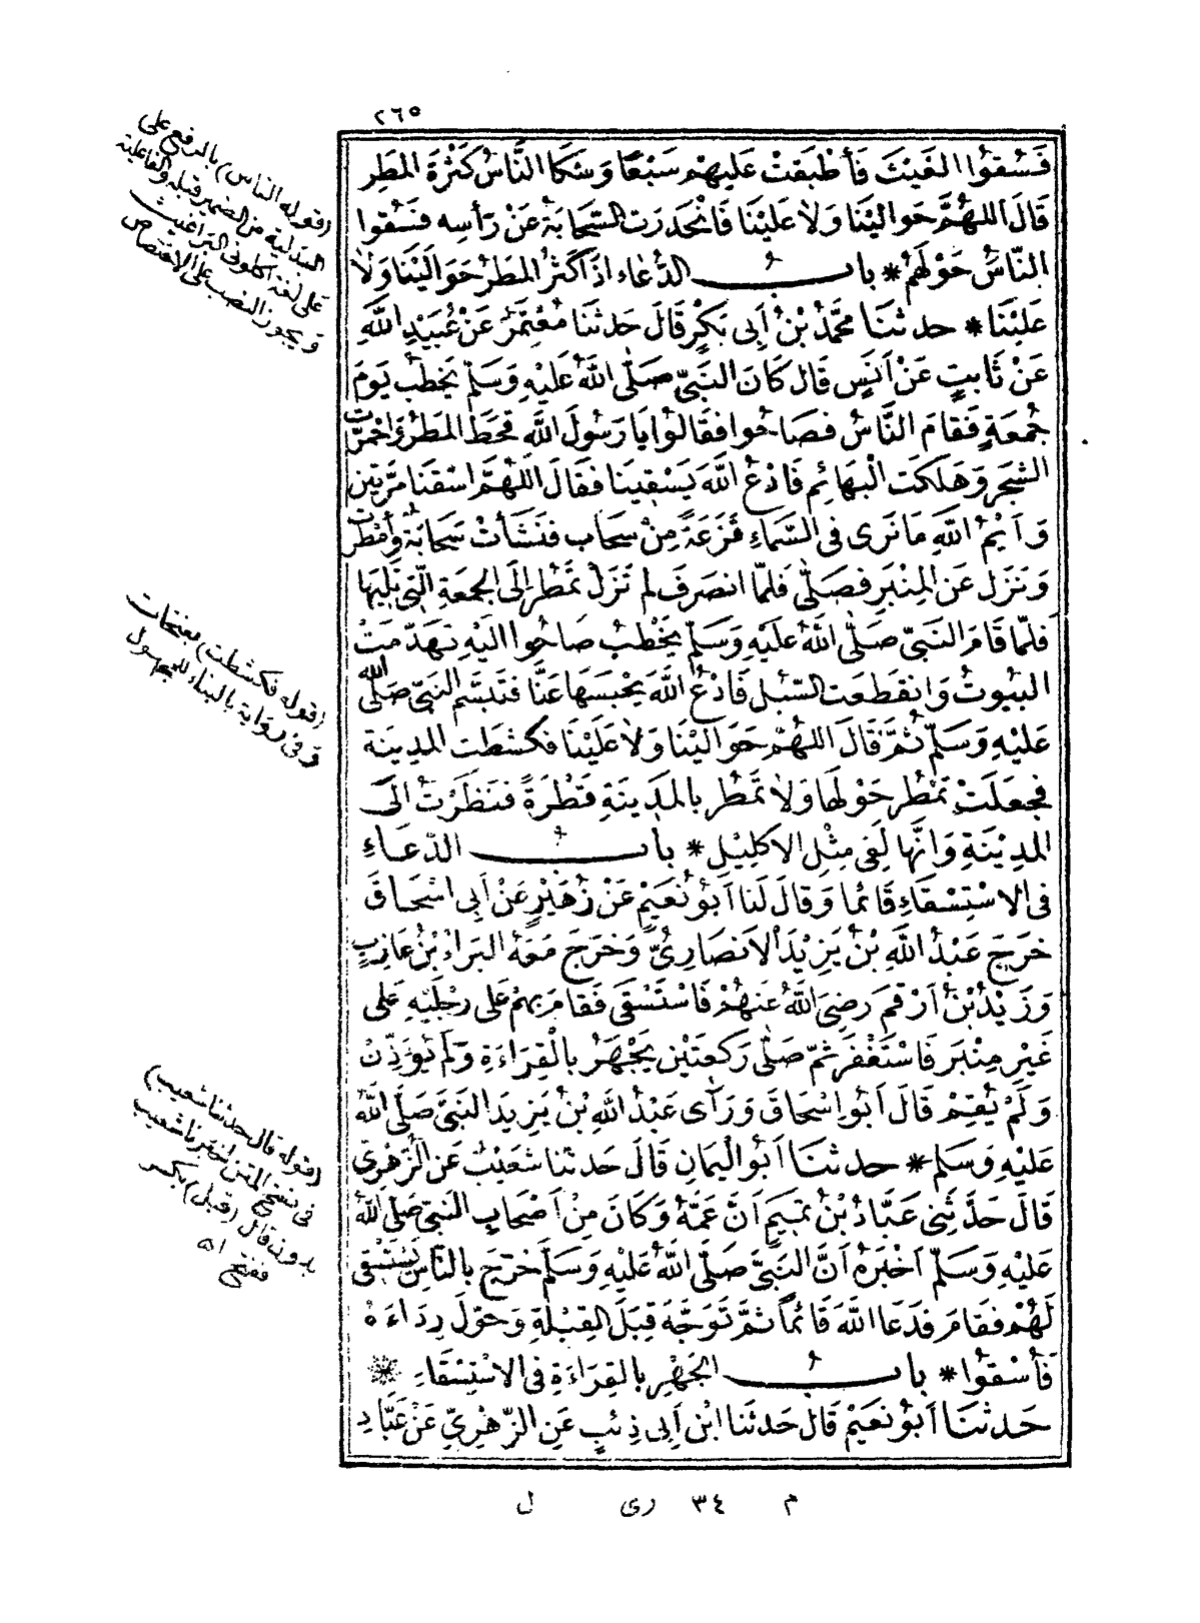 ٢٦٥
فَسُقُوا الغَيْثَ فَأَطْبَقَتْ عَلَيْهِمْ سَبْعًا وَشَكَا النَّاسُ كَثْرَةَ المَطَرِ
قَالَ اللهُمَّ حَوَالَيْنَا وَلَا عَلَيْنَا فَانْحَدَرَت السَّحَابَةُ عَنْ رَأسِهِ فَسُقُوا
النَّاسُ حَوْلَهُمْ * بابُ الدُّعَاءِ اذَا كَثُرَ المَطَرُ حَوَالَيْنَا وَلَا
عَلَيْنَا * حدثنَا مُحَمَّدُ بْنُ أَبِى بَكْرٍ قَالَ حَدثَنَا مُعْتَمِرٌ عَنْ عُبَيْدِ اللَّهِ
عَنْ ثَابِتٍ عَنْ اَنَسٍ قَالَ كَانَ النَّبِىُّ صَلَّى اللَّهُ عَلَيْهِ وَسَلَّمَ يَخْطُبُ يَوْمَ
جُمعَةٍ فَقَامَ النَّاسُ فصَاحُوا فقَالُوا يَا رَسُولَ اللَّهِ قحَطَ المَطَرُ وَاحْمَرَّت
الشجَرُ وَهَلَكَت الْبَهَائِمُ فَادْعُ اللَّهَ يَسْقِينَا فقَالَ اللهُمَّ اسْقِنَا مَرَّتَيْنِ
وَاَيْمُ اللَّهِ مَا نَرَى فى السَّمَاءِ قَزَعَةً مِنْ سَحَابٍ فَنَشَأَتْ سَحَابَةٌ وَأَمْطَرَت
وَنَزَلَ عَنِ المِنْبَرِ فَصَلَّى فَلَمَّا انصَرَفَ لم تَزَلْ تَمْطُرُ إِلَى الجمعَةِ الَّتِى تَلِيهَا
فلَمَّا قَامَ النَّبىُّ صَلَّى اللَّهُ عَلَيْهِ وَسَلَّمَ يَخْطُبُ صَاحُوا الَيْهِ تَهَدَّمَتْ
البُيُوتُ وَانقَطَعَت السُّبُلُ فَادْعُ اللَّهَ يَحْبِسْهَا عَنَّا فَتَبَسَّمَ النَّبِىُّ صَلَّى اللَّه
عَلَيْهِ وَسَلَّمَ ثُمَّ قَالَ اللهُمَّ حَوَالَيْنَا وَلَا عَلَيْنَا فكَشَطَت المَدِينَة
فَجعَلَتْ تَمْطُر حَوْلَهَا وَلَا تَمْطُر بالمَدِينَةِ قَطْرَةً فَنَظَرْتُ الَى
المَدِيْنَةِ وَانَّهَا لَفِى مِثْلِ الاكلِيْلِ * بابُ الدّعَاءِ
فِى الاسْتِسْقَاءِ قَائمًا وَقالَ لَنَا أَبُو نُعَيْمٍ عَنْ زُهَيْرٍ عَنْ أَبِى اسْحَاقَ
خَرَجَ عَبْدُ اللَّهِ بْنُ يَزِيْدَ الاَنصَارِىُّ وَخَرَجَ مَعَهُ البَرَاءُ بْنُ عَازِبٍ
وَزَيْدُ بْنُ أَرْقَمَ رضِىَ اللَّهُ عَنهُمْ فَاسْتَسْقَى فَقَامَ بِهِمْ عَلى رِجْلَيْهِ عَلى
غَيْرِ مِنْبَر فَاسْتَغْفَرَ ثُمَّ صَلَّى رَكعَتَيْنِ يَجْهَرُ بالْقِرَاءَةِ وَلَمْ يُؤَذِّنْ
وَلَمْ يُقِمْ قَالَ اَبُو اسْحَاقَ وَرَأَى عَبْدُ اللهِ بْنُ يَزِيدَ النَّبىَّ صَلَّى اللَّهُ
عَلَيْهِ وَسَلم * حدثنَا أَبُو اليَمَانِ قَالَ حَدثنَا شعَيْبٌ عَنِ الزُّهْرِىّ
قَالَ حَدَّثَنِى عَبَّادُ بْنُ تَمِيمٍ اَنَّ عَمَّهُ وَكَانَ مِنْ أَصْحَابِ النَّبىِّ صَلى اللَّهُ
عَلَيْهِ وَسَلَّمَ اَخْبَرَهُ اَنَّ النَّبِىَّ صَلَّى اللَّهُ عَلَيْهِ وَسَلَّمَ خَرَجَ بالنَّاسِ يَسْتَسْقِى
لَهُمْ فقَامَ فدَعَا اللَّهَ قَائِمًا ثُمَّ تَوَجَّهَ قِبَلَ القِبْلَةِ وَحَوَّلَ رِدَاءَهُ
فَأُسْقُوا * بابُ الجَهْرِ بالقِرَاءَةِ فى الاسْتِسْقَاءِ *
حَدثنَا أَبُو نعَيْمٍ قَالَ حَدثَنَا ابْن أَبِى ذِئبٍ عَنِ الزّهْرِيِّ عَنْ عَبَّادِ
(قوله الناس) بالرفع على
البدلية من الضمير قبله والفاعلية
على لغة اكلونى البراغيث
ويجوز النصب على الاختصاص
(قوله فكشطت) بفتحات
وفى رواية بالبناء للمجهول
(قوله قال حدثنا شعيب)
فى نسخ المتن اخبرنا شعيب
بدون قال (قبل) بكسر
ففتح اه
م ٣٤ رى ل